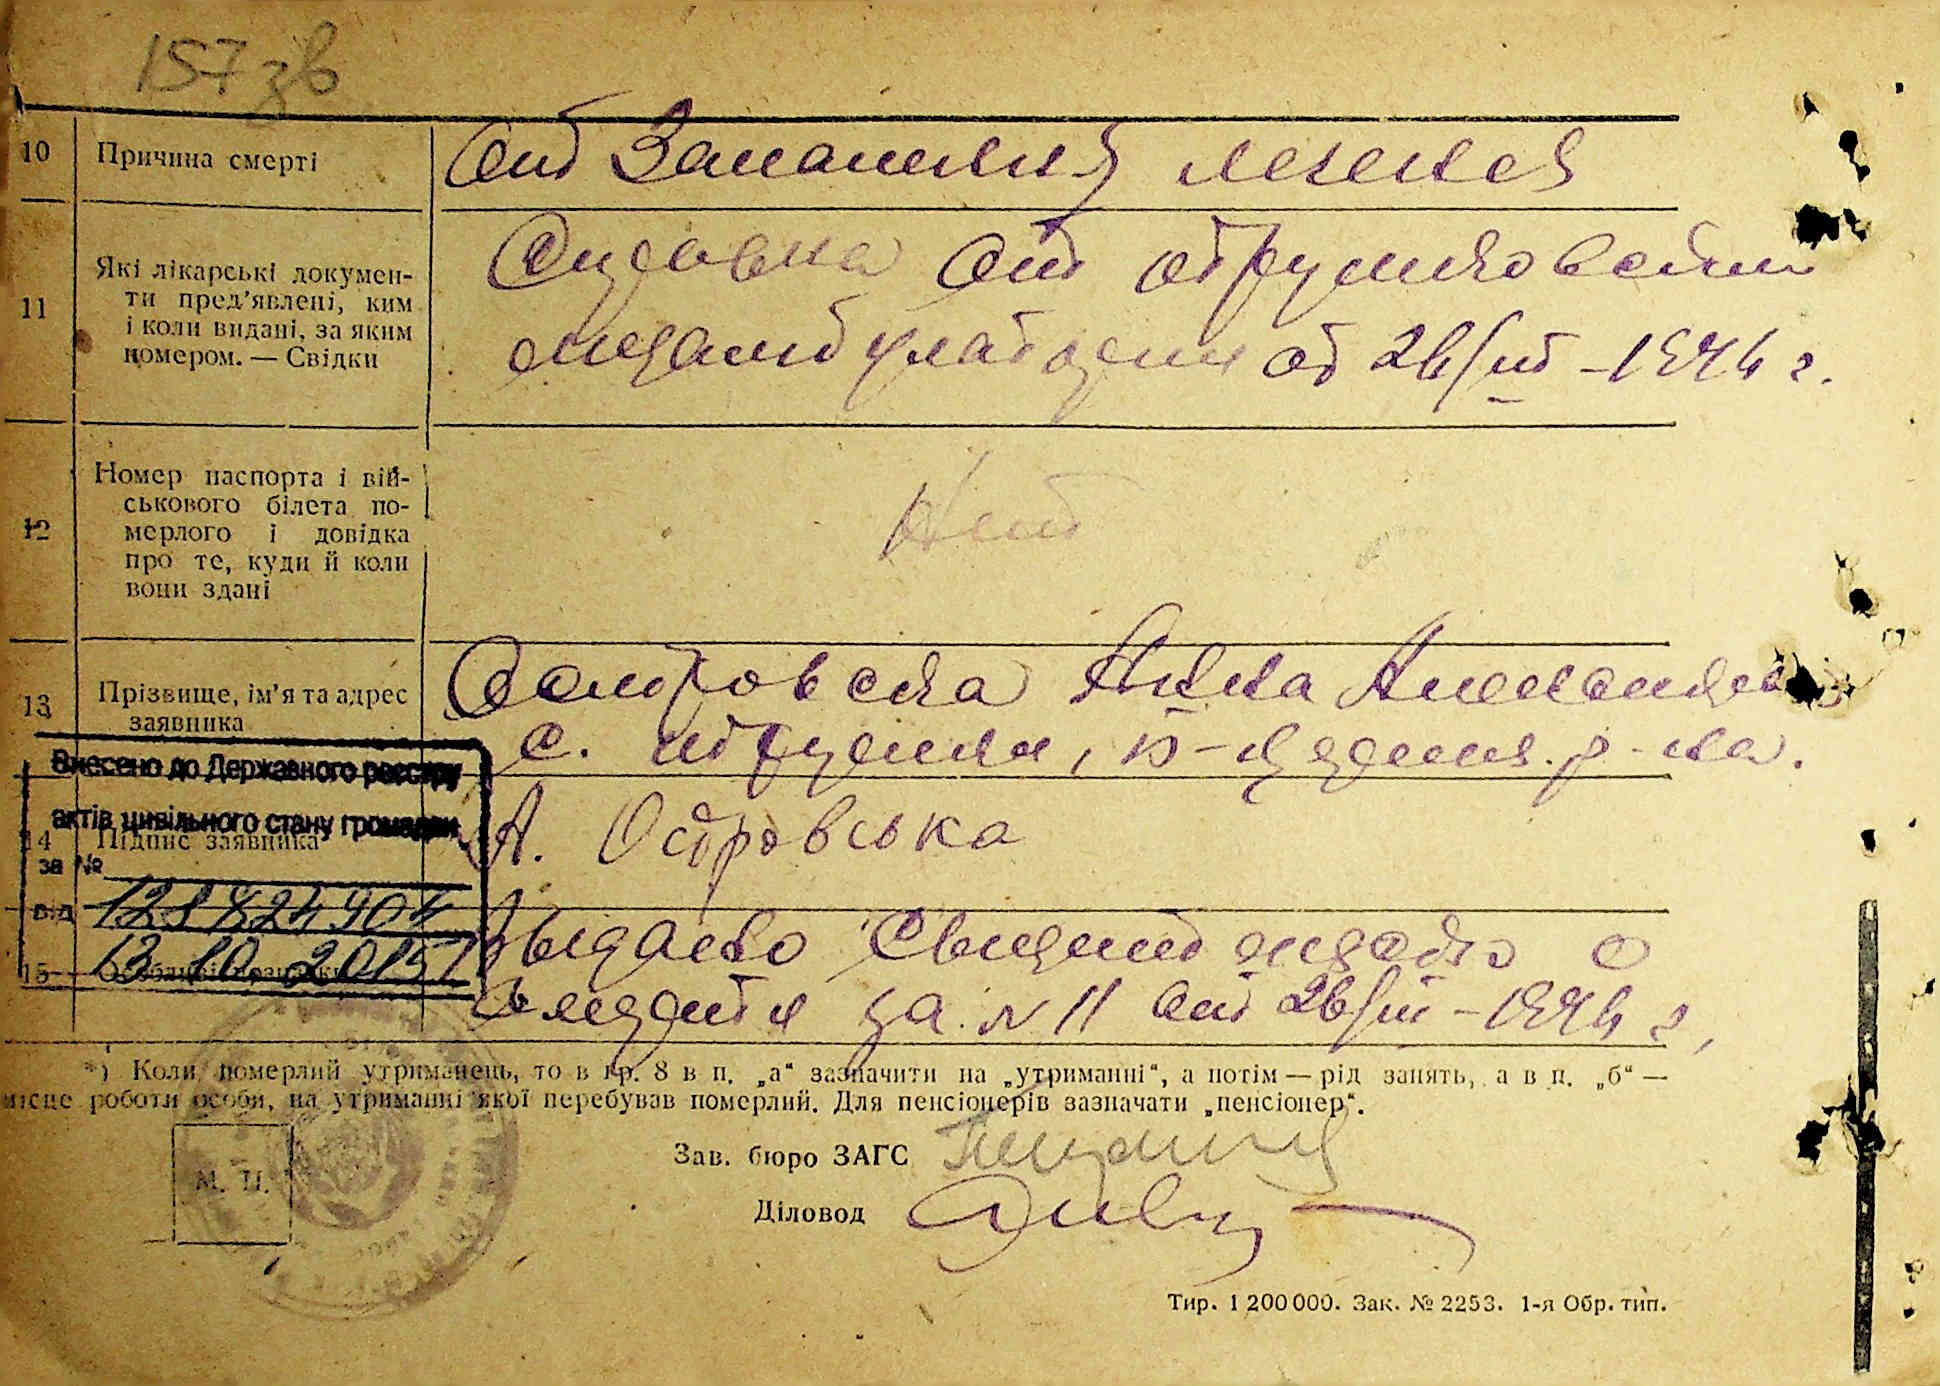 157 зв
10 Причина смерті От Запаления легких
11 Які лікарські докумен-
ти пред’явлені, ким
і коли видані, за яким
номером. — Свідки
Справка от
от 26/III - 1946 г.
12 Номер паспорта і вій-
ськового білета по-
мерлого і довідка
про те, куди й коли
вони здані
Нет
13 Прізвище, ім’я та адрес
заявника
Островска Анна
с.
р-на.
Внесено до Державного реєстру
актів цивільного стану громадян
за № 128824904
від 13 10 2015
14 Підпис заявника
А. Островська
15 Особливі познаки
Выдано о
за N 11 от 26/III - 1946 г.
*) Коли померлий утриманець, то в гр. 8 в п. „а“ зазначити на „утриманні“, а потім — рід занять, а в п. „б“ —
місце роботи особи, на утриманні якої перебував померлий. Для пенсіонерів зазначати „пенсіонер“.
М. П.
Зав. бюро ЗАГС
Діловод
Тир. 1 200 000. Зак. № 2253. 1-я Обр. тип.